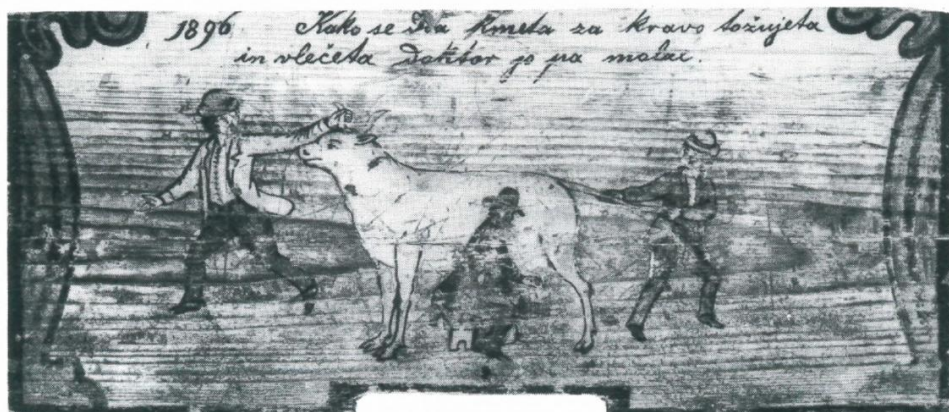 1896 Kako se dva kmeta za kravo tožujeta
in vlečeta Doktor jo pa molze.